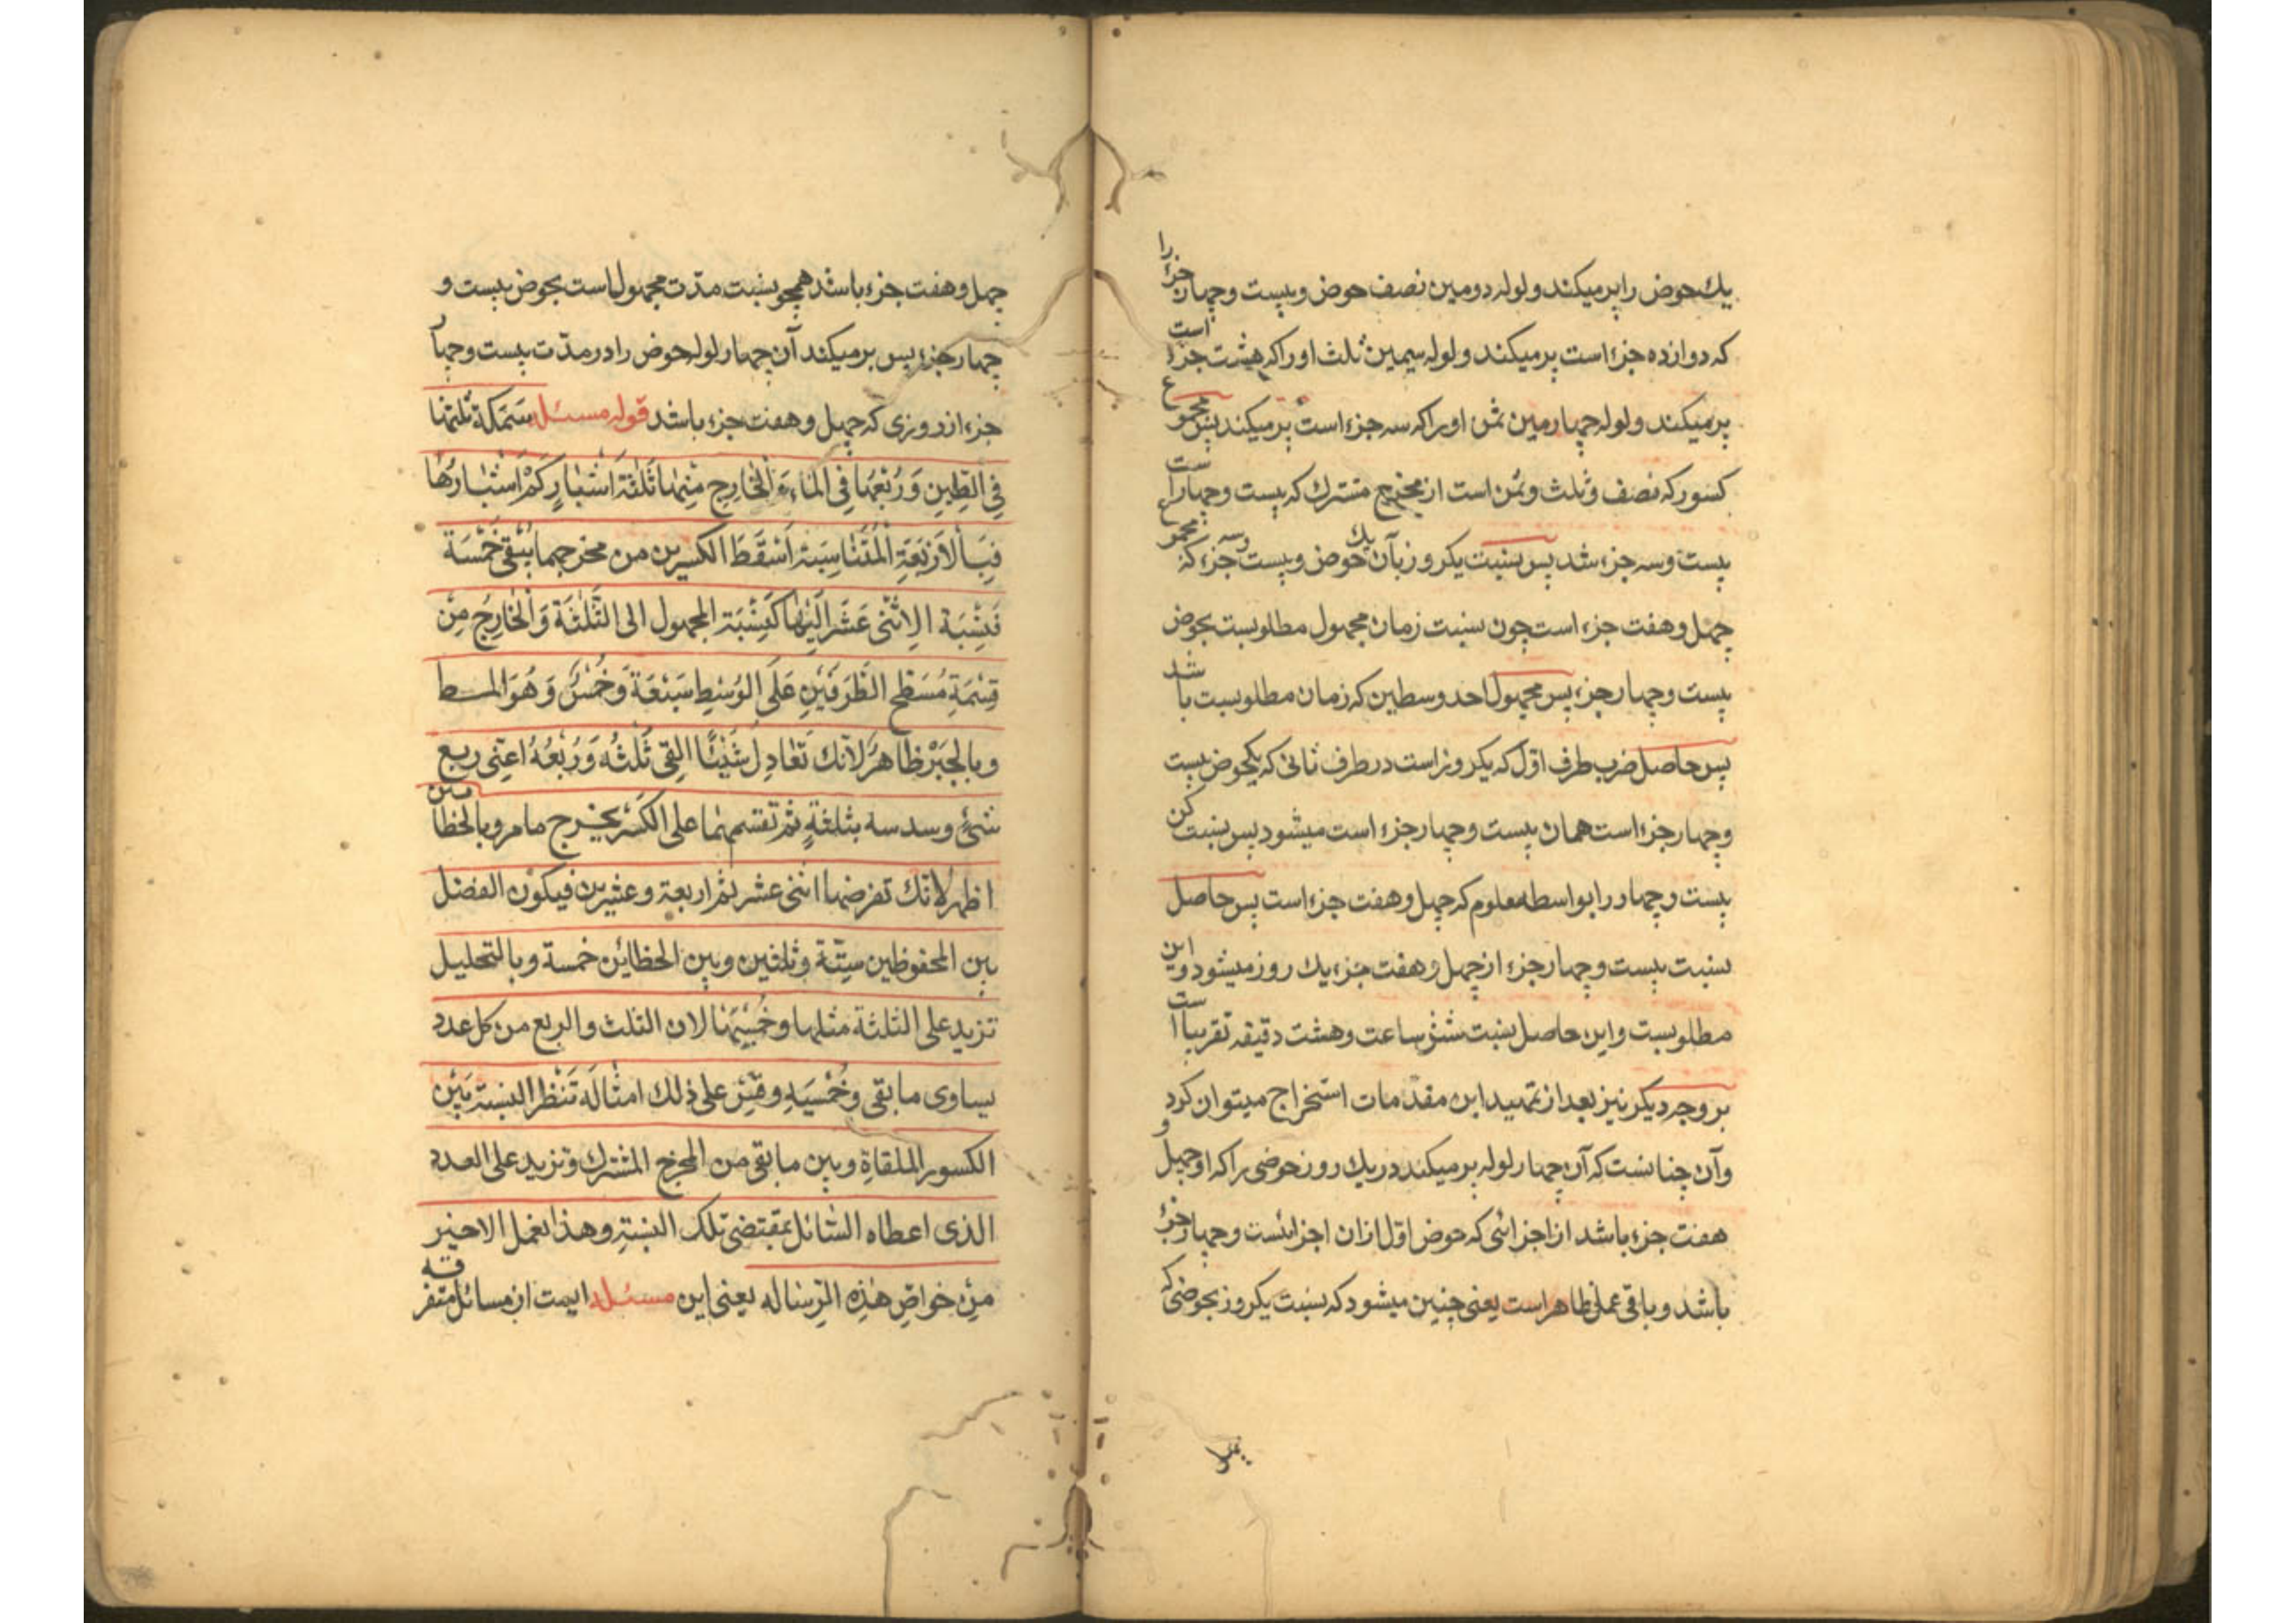 يك حوض را پر ميكند و لوله دومين نصف حوض و بيست و چهار جزء را
كه دوازده جزء است پر ميكند و لوله سيمين ثلث او را كه هشت جزء است
پر ميكند و لوله چهارمين ثمن او را كه سه جزء است پر ميكند پس مجموع
كسور كه نصف و ثلث و ثمن است از مخرج مشترك كه بيست و چهار است
بيست و سه جزء شد پس نسبت يكروز بآن يك حوض و بيست و سه جزء كه مجموع
چهل و هفت جزء است چون نسبت زمان مجهول مطلوبست بحوض
بيست و چهار جزء پس مجهول احد وسطين كه زمان مطلوبست باشد
پس حاصل ضرب طرف اوّل كه يكروز است در طرف ثانى كه يكحوض بيست
و چهار جزء است همان بيست و چهار جزء است ميشود پس نسبت كن
بيست و چهار را بواسطه معلوم كه چهل و هفت جزء است پس حاصل
نسبت بيست و چهار جزء از چهل و هفت جزء يك روز ميشود و اين
مطلوبست و اين حاصل نسبت شش ساعت و هشت دقيقه تقريباً است
بر وجه ديكر نيز بعد از تمهيد اين مقدّمات استخراج ميتوان كرد
و آن چنانست كه آن چهار لوله پر ميكند در يك روز حوضى را كه او چهل و
هفت جزء باشد از اجزائى كه حوض اوّل ازان اجزا بيست و چهار جزء
باشد و باقى عمل ظاهر است يعنى چنين ميشود كه نسبت يكروز بحوضى كه
چهل و هفت جزء باشد همچو نسبت مدّت مجهول است بحوض بيست و
چهار جزء پس پر ميكند آن چهار لوله حوض را در مدّت بيست و چهار
جزء از روزى كه چهل و هفت جزء باشد قوله مسئلة سَمَكَة ثلثها
فِى الطِّينِ وَ رُبْعُها فِى الماءِ وَ الْخارِج مِنها ثَلثَة اَشْبارٍ كَمْ اَشْبارُها
فَبِالْاَرْبَعَةِ الْمُتَناسِبَةِ اَسْقَطَ الكسرين من مخرجهما يَبْقى خَمْسَة
فَنِسْبَة الاِثْنَى عَشَر اِلَيْها كَنِسْبَة المجهول الى الثَّلثَة وَ الْخارِج مِنْ
قِسْمَةِ مُسَطَّح الطَّرَفَيْنِ عَلَى الوَسْطِ سَبْعَة وَ خُمْسٌ وَ هُوَ المط
و بالجَبْر ظاهرٌ لاَنَّك تُعادِل شَيْئًا القى ثُلثُه وَ رُبْعُهُ اعنِى ربع
شئ و سدسه بثلثةٍ ثم تقسمها على الكَسْر يخرج ما مر و بالخطاين
اظهر لانّك تفرضها اثنى عشر ثم اربعة و عشرين فيكون الفضل
بين المحفوظين ستّة و ثلثين و بين الخطاين خمسة و بالتحليل
تزيد على الثلثة مثلها و خُمْسَيْها لان الثلث و الربع من كل عدد
يساوى ما بقى و خُمْسَيْهِ و قِسْ على ذلك امثالَه تَنْظر النسبة بَيْن
الكسور الملقاةِ و بين ما بقى من المخرج المشترك و تزيد على العدد
الذى اعطاه السّائل بمقتضى تلك النسبةِ و هذا العمل الاخير
مِنْ خواصّ هذِه الرّسَالة يعنى اين مسئله ايست از مسائل متفرقه
چهل